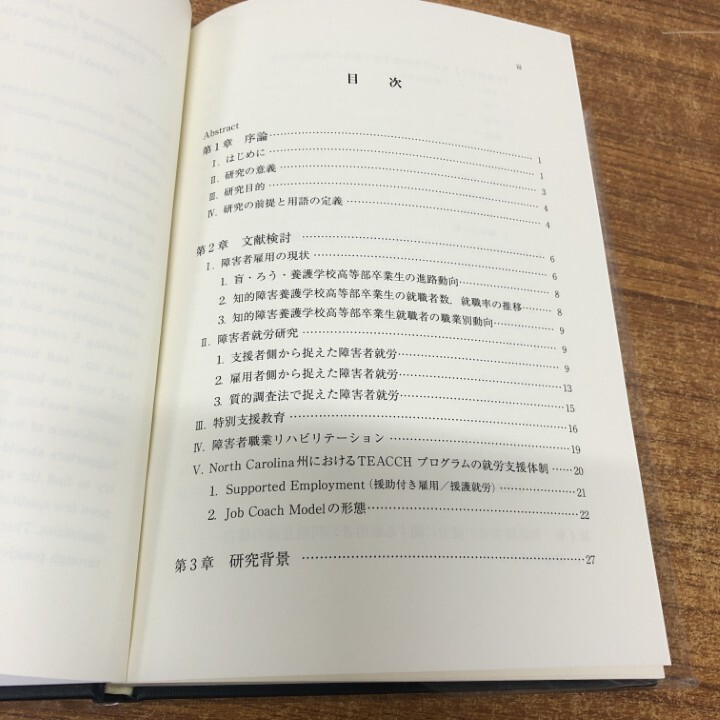 iii
目 次
Abstract
第1章 序論 1
Ⅰ. はじめに 1
Ⅱ. 研究の意義 3
Ⅲ. 研究目的 4
Ⅳ. 研究の前提と用語の定義 4
第2章 文献検討 6
Ⅰ. 障害者雇用の現状 6
1. 盲・ろう・養護学校高等部卒業生の進路動向 8
2. 知的障害養護学校高等部卒業生の就職者数，就職率の推移 8
3. 知的障害養護学校高等部卒業生就職者の職業別動向 9
Ⅱ. 障害者就労研究 9
1. 支援者側から捉えた障害者就労 9
2. 雇用者側から捉えた障害者就労 13
3. 質的調査法で捉えた障害者就労 15
Ⅲ. 特別支援教育 16
Ⅳ. 障害者職業リハビリテーション 19
Ⅴ. North Carolina州におけるTEACCH プログラムの就労支援体制 20
1. Supported Employment（援助付き雇用／援護就労） 21
2. Job Coach Modelの形態 22
第3章 研究背景 27